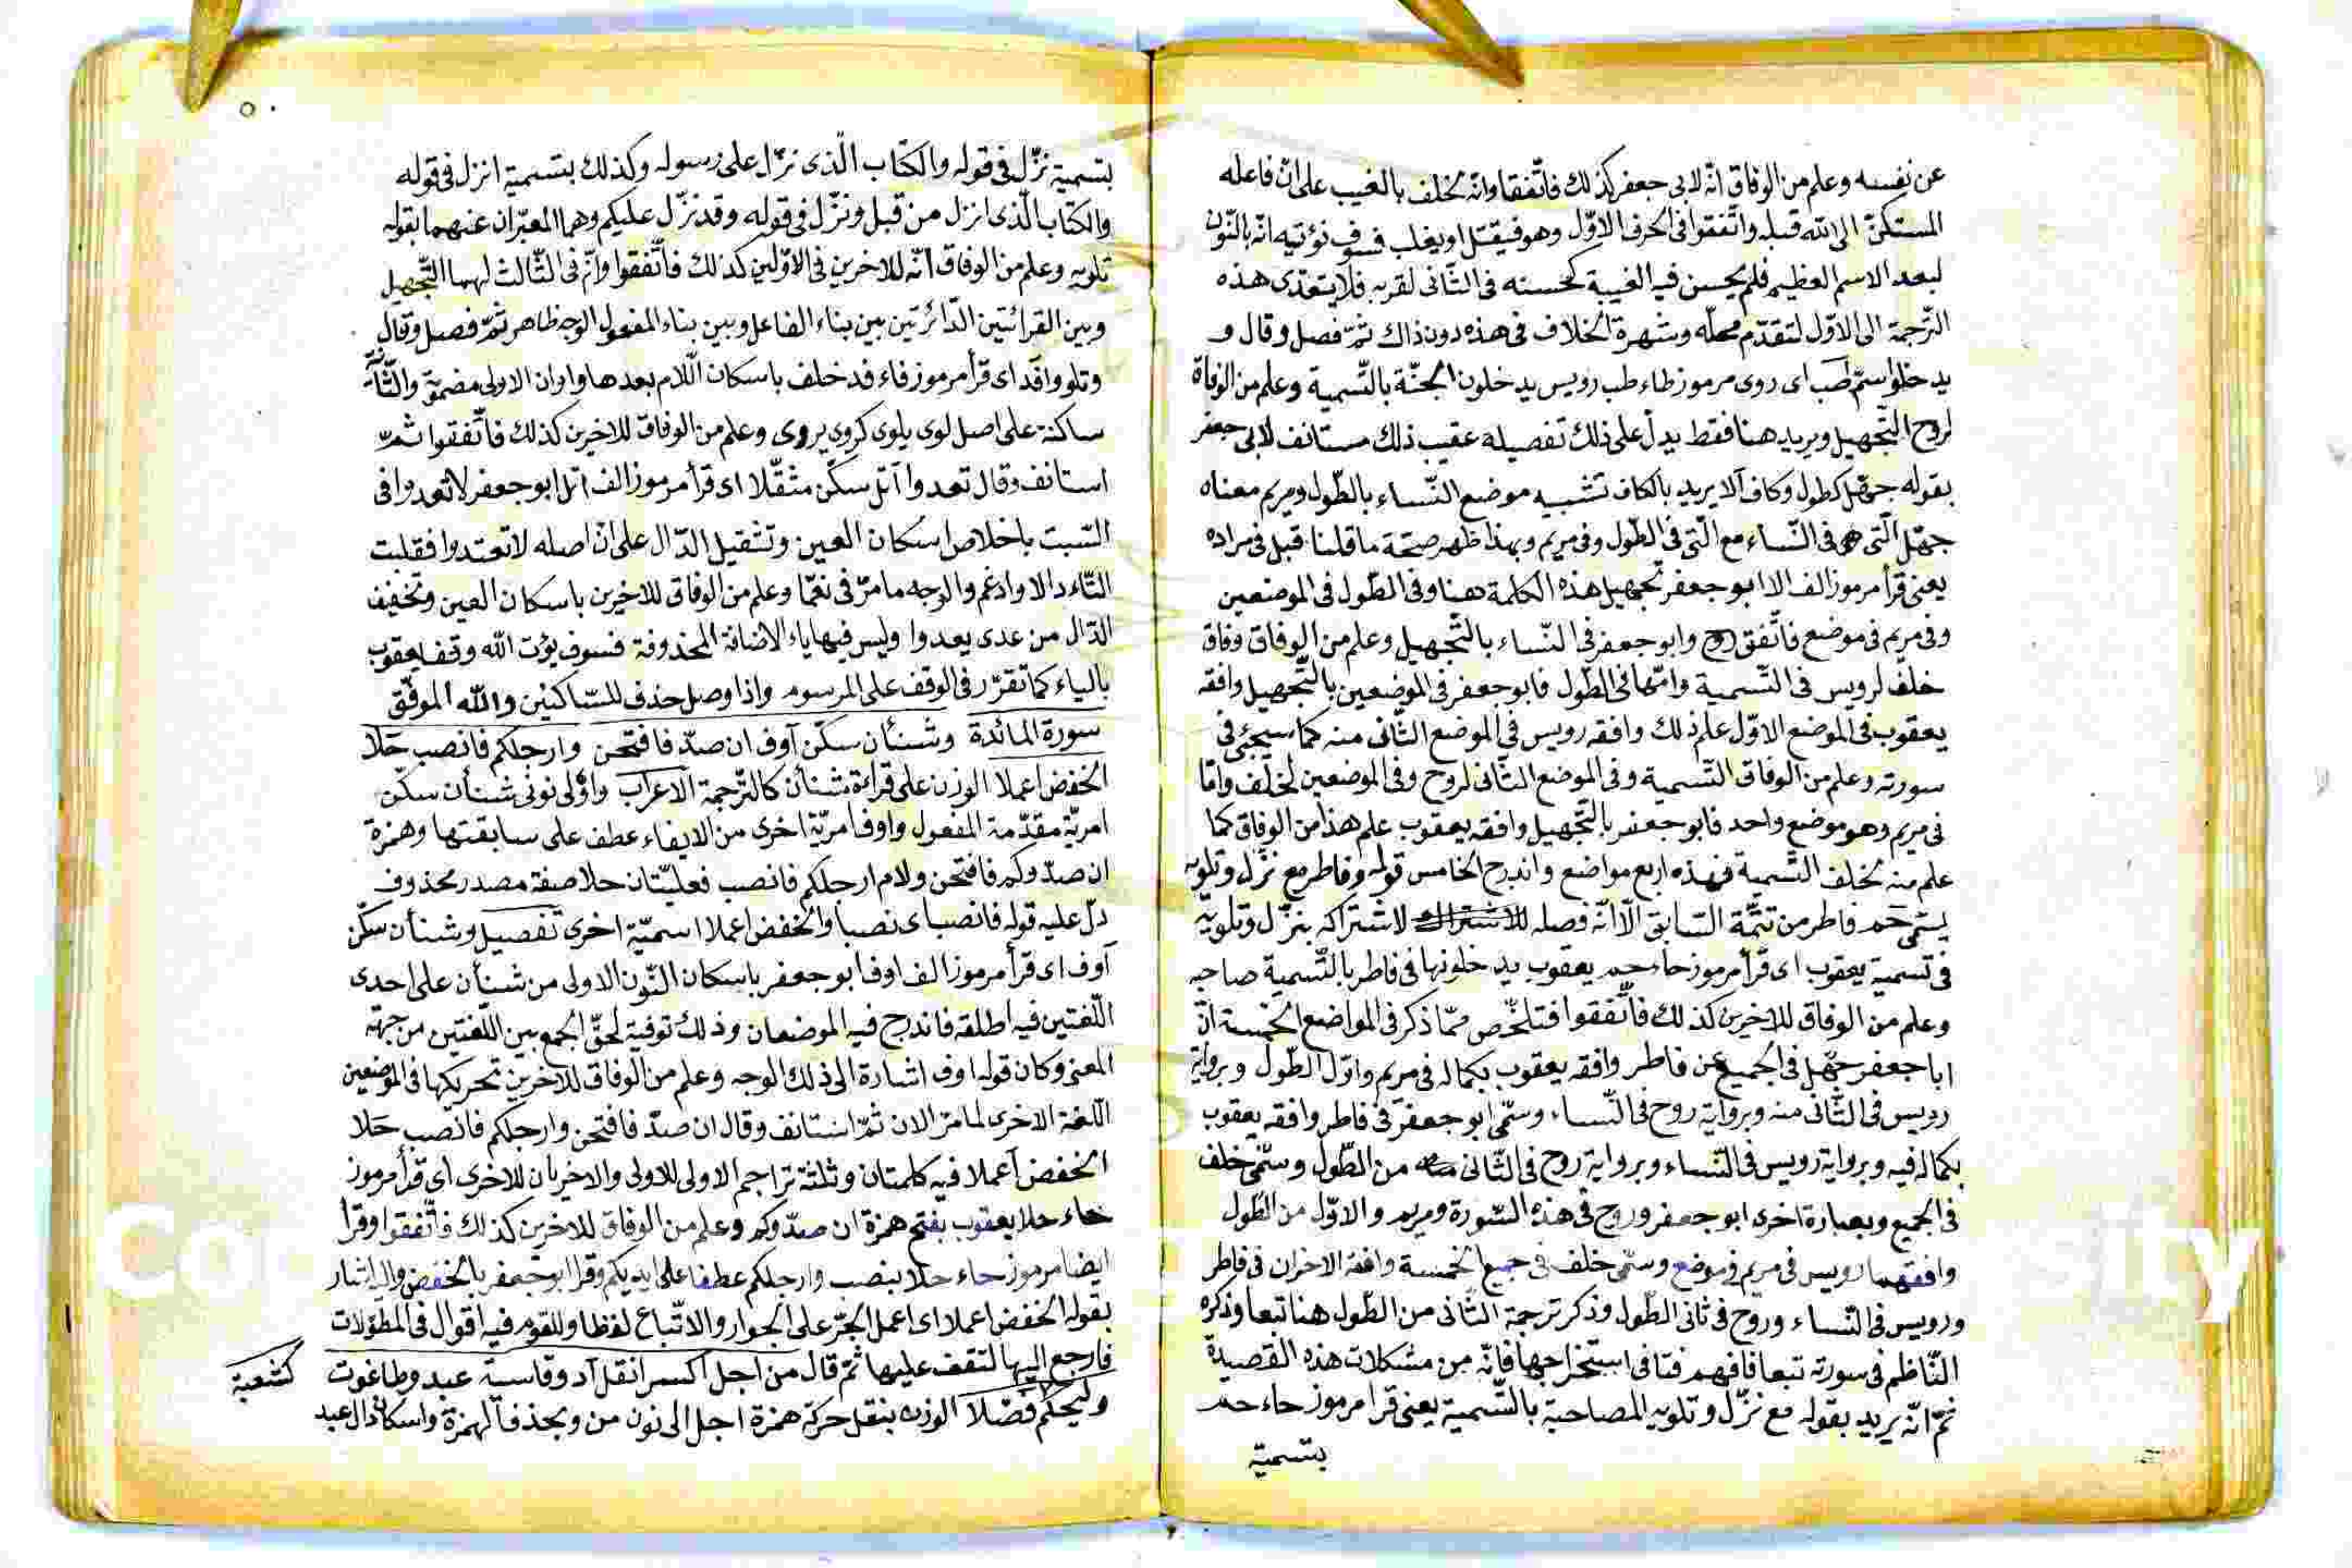 عن نفسه وعلم من الوفاق انّه لابى جعفر كذلك فاتّفقا وانّه لخلف بالغيب على انّ فاعله
المستكنّ الى الله قبله واتّفقوا فى الحرف الاوّل وهو فيقتل او يغلب فسوف نؤتيه انّه بالنّون
لبعد الاسم العظيم فلم يحسن فيه الغيبة كحسنه فى الثّانى لقربه فلا يتعدّى هذه
الترجمة الى الاوّل لتقدّم محلّه وشهرة الخلاف فى هذه دون ذاك ثمّ فصل وقال و
يدخلوا سمّ طب اى روى مرموز طاء طب رويس يدخلون الجنّة بالتّسمية وعلم من الوفاق
لروح التّجهيل ويريد هنا فقط يدلّ على ذلك تفصيله عقيب ذلك مستانف لابى جعفر
بقوله جهّل كطول وكاف الا يريد بالكاف تشبيه موضع النّساء بالطّول ومريم معناه
جهّل الّتى هى فى النّساء مع الّتى فى الطّول وفى مريم وبهذا ظهر صحّة ما قلنا قبل فى مراده
يعنى قرأ مرموز الف الا ابو جعفر تجهيل هذه الكلمة هنا وفى الطّول فى الموضعين
وفى مريم فى موضع فاتّفق روح وابو جعفر فى النّساء بالتّجهيل وعلم من الوفاق وفاق
خلف لرويس فى التّسمية وامّا فى الطّول فابو جعفر فى الموضعين بالتّجهيل وافقه
يعقوب فى الموضع الاوّل علم ذلك وافقه رويس فى الموضع الثّانى منه كما سيجئ فى
سورته وعلم من الوفاق التّسمية وفى الموضع الثّانى لروح وفى الموضعين لخلف وامّا
فى مريم وهو موضع واحد فابو جعفر بالتّجهيل وافقه يعقوب علم هذا من الوفاق كما
علم منه لخلف التّسمية فهذه اربع مواضع واندرج الخامس قوله وفاطر مع نزّل وتلويه
يسمّى حم فاطر من تتمّة السّابق الّا انّه فصله لاشتراكه بنزّل وتلويه
فى تسمية يعقوب اى قرأ مرموز حاء حم يعقوب يدخلونها فى فاطر بالتّسمية صاحبه
وعلم من الوفاق للاخرين كذلك فاتّفقوا فتلخّص ممّا ذكر فى المواضع الخمسة انّ
ابا جعفر جهّل فى الجميع عن فاطر وافقه يعقوب بكماله فى مريم واوّل الطّول وبرواية
رويس فى الثّانى منه وبرواية روح فى النّساء وسمّى ابو جعفر فى فاطر وافقه يعقوب
بكماله فيه وبرواية رويس فى النّساء وبرواية روح فى الثّانى من الطّول وسمّى خلف
فى الجميع وبعبارة اخرى ابو جعفر وروح فى هذه السّورة ومريم والاوّل من الطّول
وافقهما رويس فى مريم فى موضع وسمّى خلف فى جميع الخمسة وافقه الاخران فى فاطر
ورويس فى النّساء وروح فى ثانى الطّول وذكر ترجمة الثّانى من الطّول هنا تبعا وذكره
النّاظم فى سورته تبعا فافهم فتا فى استخراجها فانّه من مشكلات هذه القصيدة
ثمّ انّه يريد بقوله مع نزّل وتلويه المصاحبة بالتّسمية يعنى قرأ مرموز حاء حم
بتسمية
بتسمية نزّل فى قوله والكتاب الّذى نزّل على رسوله وكذلك بتسمية انزل فى قوله
والكتاب الّذى انزل من قبل ونزّل فى قوله وقد نزّل عليكم وهما المعبّران عنهما بقوله
تلويه وعلم من الوفاق انّه للاخرين فى الاوّلين كذلك فاتّفقوا وانّ فى الثّالث لهما التّجهيل
وبين القرائتين الدّائرتين بين بناء الفاعل وبين بناء المفعول الوجه ظاهر ثمّ فصل وقال
وتلووا فد اى قرأ مرموز فاء فد خلف باسكان اللّام بعدها واوان الاولى مضمومة والثّانية
ساكنة على اصل لوى يلوى كروى يروى وعلم من الوفاق للاخرين كذلك فاتّفقوا ثمّ
استانف وقال تعدوا اتل سكّن مثقّلا اى قرأ مرموز الف اتل ابو جعفر لا تعدوا فى
السّبت باخلاص اسكان العين وتثقيل الدّال على انّ اصله لا تعتدوا فقلبت
التّاء دالا وادغم والوجه ما مرّ فى نعمّا وعلم من الوفاق للاخرين باسكان العين وتخفيف
الدّال من عدى يعدوا وليس فيها ياء الاضافة المحذوفة فسوف يؤت الله وقف يعقوب
بالياء كما تقرّر فى الوقف على المرسوم واذا وصل حذف للسّاكنين والله الموفّق
سورة المائدة وشنأن سكّن اوف ان صدّ فافتحن وارجلكم فانصب حلا
الخفض اعملا الوزن على قراءة شنأن كالتّرجمة الاعراب واوّلى نونى شنأن سكّن
امريّة مقدّمة المفعول واوف امريّة اخرى من الايفاء عطف على سابقتها وهمزة
ان صدّوكم فافتحن ولام ارجلكم فانصب فعليّتان حلا صفة مصدر محذوف
دلّ عليه قوله فانصب اى نصبا والخفض اعملا اسميّة اخرى تفصيل وشنأن سكّن
اوف اى قرأ مرموز الف اوف ابو جعفر باسكان النّون الاولى من شنأن على احدى
اللّغتين فيه اطلقه فاندرج فيه الموضعان وذلك توفية لحقّ الجمع بين اللّغتين من جهة
المعنى وكان قوله اوف اشارة الى ذلك الوجه وعلم من الوفاق للاخرين تحريكها فى الموضعين
اللّغة الاخرى لما مرّ الان ثمّ استانف وقال ان صدّ فافتحن وارجلكم فانصب حلا
الخفض اعملا فيه كلمتان وثلثة تراجم الاولى للاولى والاخريان للاخرى اى قرأ مرموز
حاء حلا يعقوب بفتح همزة ان صدّوكم وعلم من الوفاق للاخرين كذلك فاتّفقوا وقرأ
ايضا مرموز حاء حلا بنصب وارجلكم عطفا على ايديكم وقرا ابو جعفر بالخفض واليه اشار
بقوله الخفض اعملا اى اعمل الجرّ على الجوار والاتّباع لفظا وللقوم فيه اقوال فى المطوّلات
فارجع اليها لتقف عليها ثمّ قال من اجل اكسر انقل اد وقاسية عبد وطاغوت
وليحكم كشعبة فضّلا الوزن بنقل حركة همزة اجل الى نون من وبحذف الهمزة واسكان دال عبد